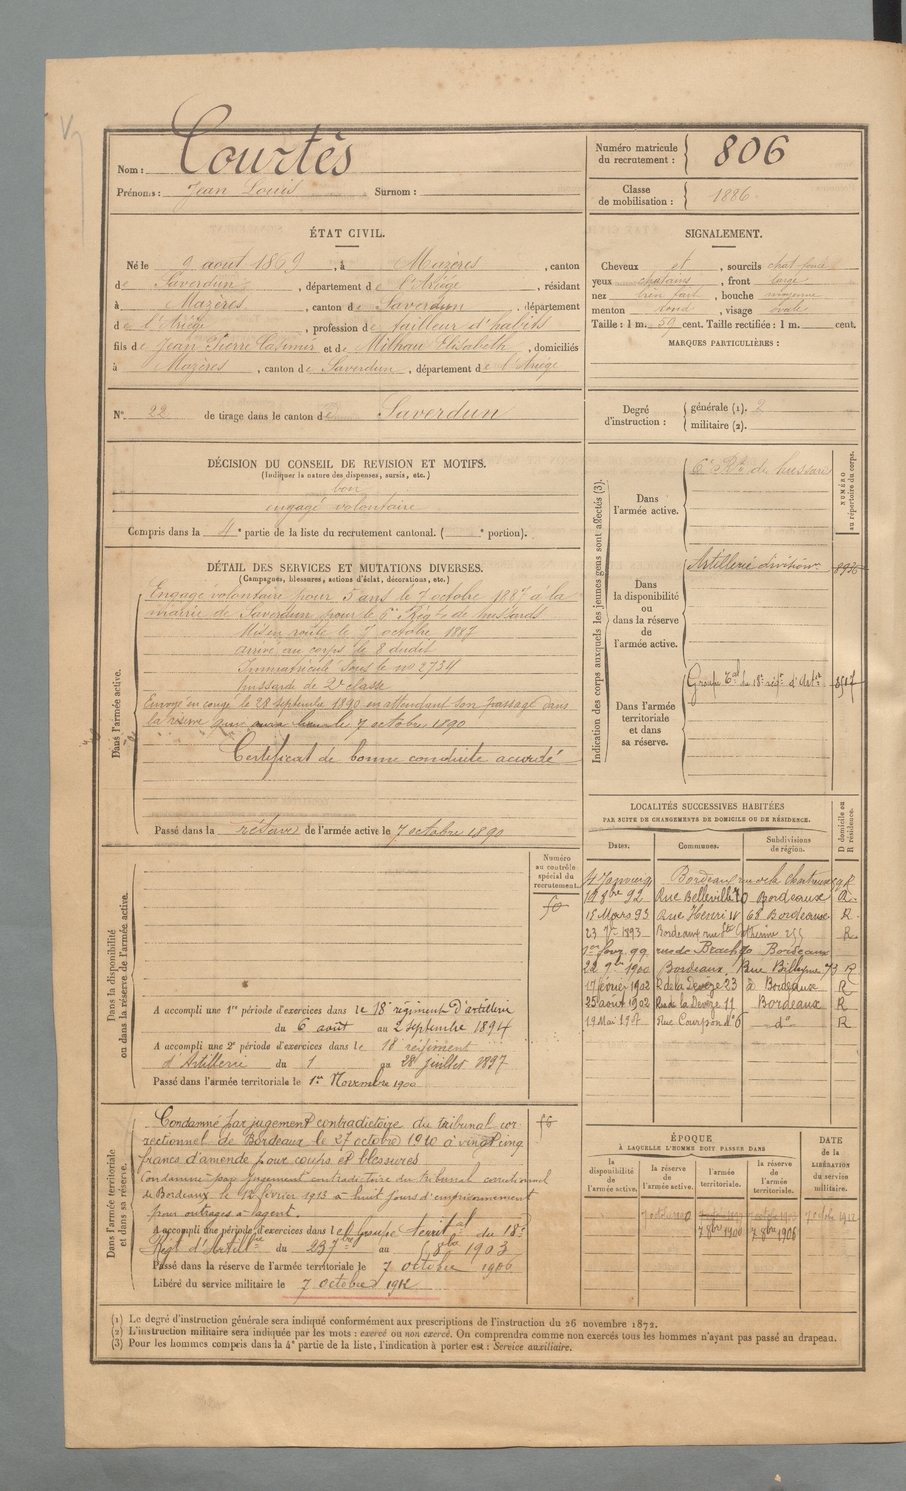 Nom : Courtès
Prénoms : Jean Louis Surnom :
Numéro matricule du recrutement : 806
Classe de mobilisation : 1886
ÉTAT CIVIL.
Né le 9 aout 1869, à Mazères, canton
de Saverdun, département de l'Ariège, résidant
à Mazères, canton de Saverdun, département
de l'Ariège, profession de tailleur d'habits
fils de Jean Pierre Casimir et de Milhau Elisabeth, domiciliés
à Mazères, canton de Saverdun, département de l'Ariège
SIGNALEMENT.
Cheveux et, sourcils chat. foncé
yeux chatains, front large
nez bien fait, bouche moyenne
menton rond, visage ovale
Taille : 1 m. 59 cent. Taille rectifiée : 1 m. cent.
MARQUES PARTICULIÈRES :
N° 22 de tirage dans le canton de Saverdun
Degré d'instruction : générale (1). 2
militaire (2).
DÉCISION DU CONSEIL DE REVISION ET MOTIFS.
(Indiquer la nature des dispenses, sursis, etc.)
bon
engagé volontaire
Compris dans la 4e partie de la liste du recrutement cantonal. ( e portion).
DÉTAIL DES SERVICES ET MUTATIONS DIVERSES.
(Campagnes, blessures, actions d'éclat, décorations, etc.)
Dans l'armée active.
Engagé volontaire pour 5 ans le 7 octobre 1887 à la
mairie de Saverdun pour le 6e Régt de hussards
Mis en route le 7 octobre 1887
arrivé au corps le 8 dudit
Immatriculé sous le no 2734
hussard de 2e classe
Envoyé en congé le 28 septembre 1890 en attendant son passage dans
la réserve qui aura lieu le 7 octobre 1890
Certificat de bonne conduite accordé
Passé dans la réserve de l'armée active le 7 octobre 1890
Indication des corps auxquels les jeunes gens sont affectés (3).
NUMÉRO au répertoire du corps.
Dans l'armée active.
6e Rt de hussards
Dans la disponibilité ou dans la réserve de l'armée active.
Artillerie division.
Dans l'armée territoriale et dans sa réserve.
Groupe Tal du 18e régt d'Artie
LOCALITÉS SUCCESSIVES HABITÉES
PAR SUITE DE CHANGEMENTS DE DOMICILE OU DE RÉSIDENCE.
Dates. Communes. Subdivisions de région. D domicile ou R résidence.
Bordeaux
18 8bre 92 Rue Belleville 70 Bordeaux R.
15 Mars 93 Rue Henri IV 68 Bordeaux R.
1893 Bordeaux rue Ste Catherine 255 R
99 rue de Bordeaux
22 9bre 1900 Bordeaux, Rue 73 R
17 février 1902 R de la Devèze 23 à Bordeaux R
25 aout 1902 Rue de la Devèze 11 Bordeaux R
19 Mai 1907 Rue Courpon no 6 do R
Dans la disponibilité ou dans la réserve de l'armée active.
Numéro au contrôle spécial du recrutement.
A accompli une 1re période d'exercices dans le 18e régiment d'artillerie
du 6 août au 2 septembre 1894
A accompli une 2e période d'exercices dans le 18 régiment
d'Artillerie du 1 au 28 juillet 1897
Passé dans l'armée territoriale le 1er Novembre 1900
Dans l'armée territoriale et dans sa réserve.
Condamné par jugement contradictoire du tribunal cor-
rectionnel de Bordeaux le 27 octobre 1910 à vingt cinq
francs d'amende pour coups et blessures
Condamné par jugement contradictoire du tribunal correctionnel
de Bordeaux le février 1913 à huit jours d'emprisonnement
pour outrages à l'agent.
A accompli une période d'exercices dans le Groupe territal du 18e
Régt d'Artillie du 23 7bre au 8bre 1903
Passé dans la réserve de l'armée territoriale le 7 octobre 1906
Libéré du service militaire le 7 octobre 1912
ÉPOQUE
À LAQUELLE L'HOMME DOIT PASSER DANS
la disponibilité de l'armée active. la réserve de l'armée active. l'armée territoriale. la réserve de l'armée territoriale.
DATE de la LIBÉRATION du service militaire.
7 8bre 1900 7 8bre 1906
(1) Le degré d'instruction générale sera indiqué conformément aux prescriptions de l'instruction du 26 novembre 1872.
(2) L'instruction militaire sera indiquée par les mots : exercé ou non exercé. On comprendra comme non exercés tous les hommes n'ayant pas passé au drapeau.
(3) Pour les hommes compris dans la 4e partie de la liste, l'indication à porter est : Service auxiliaire.